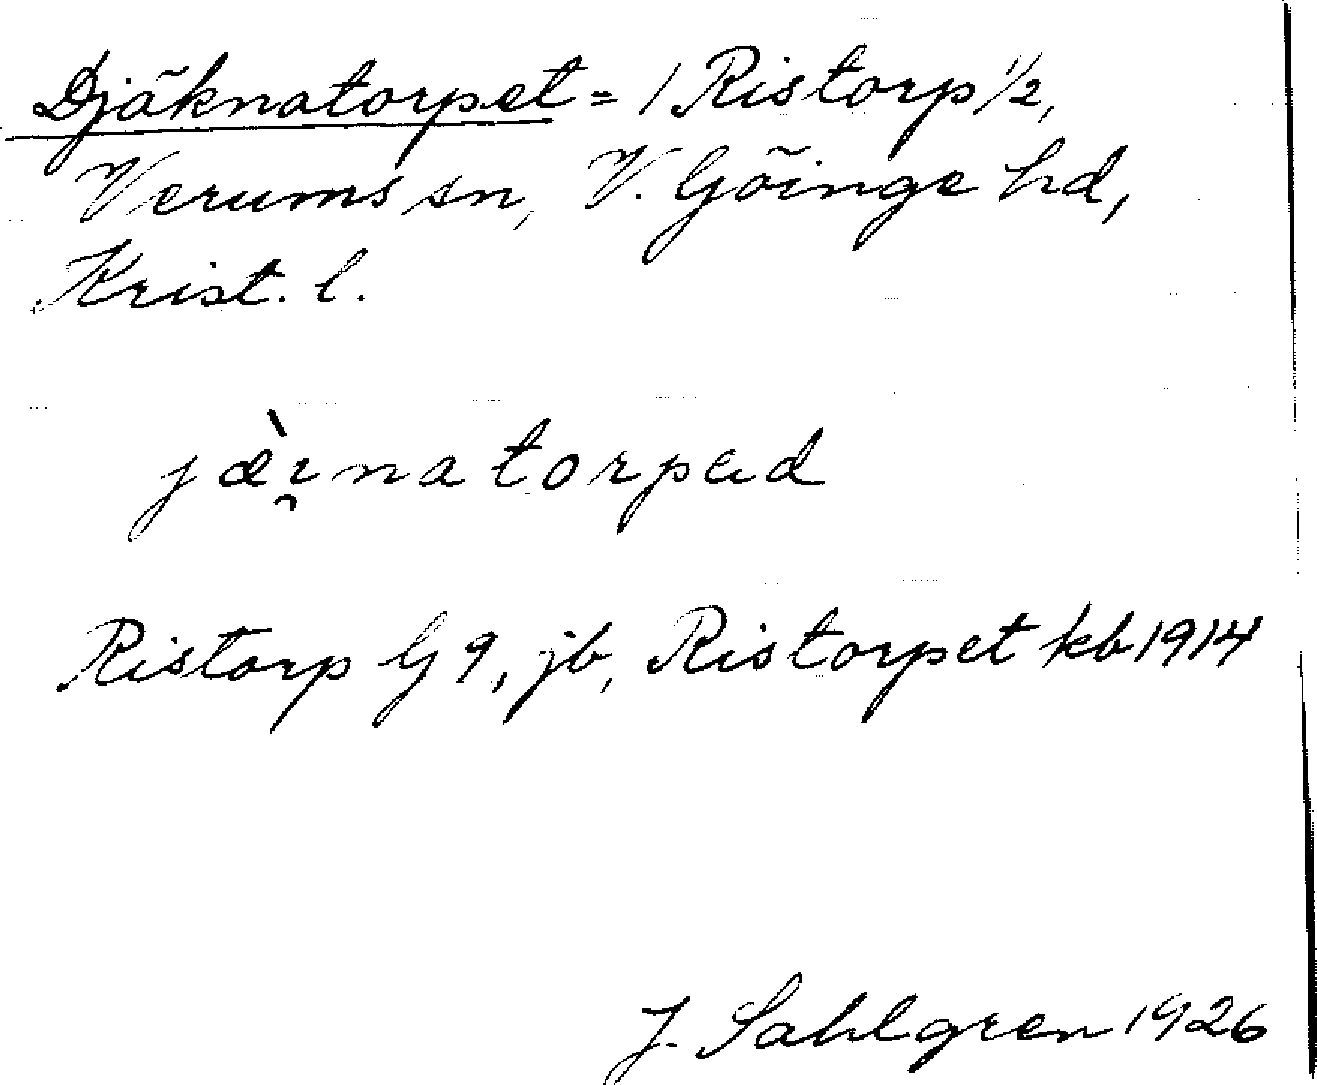 Djäknatorpet = 1 Ristorp 1/2,
Verums sn, V. Göinge hd,
Krist. l.
jæ̀ı̯natorpad
Ristorp G 9, jb, Ristorpet kb 1914
J. Sahlgren 1926